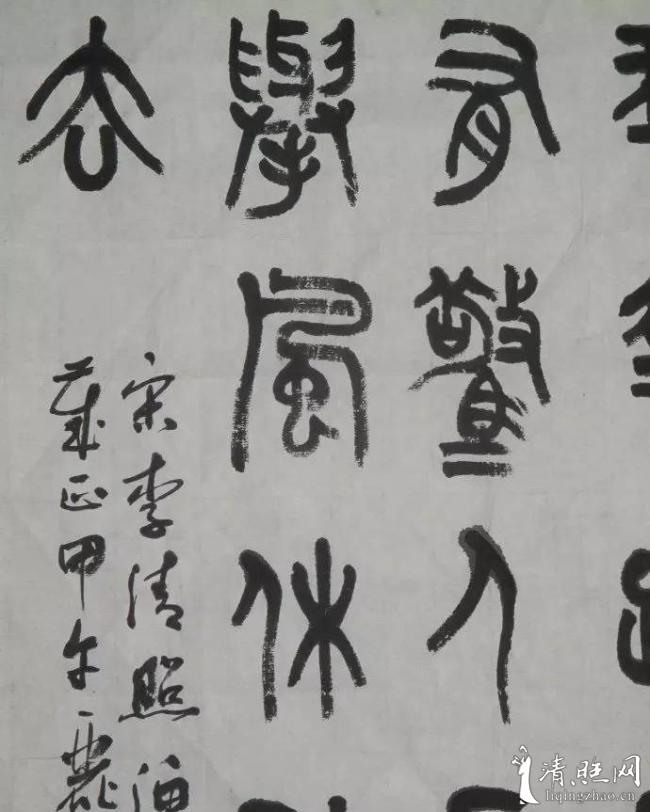 有驚人
舉風休
去
宋李清照漁
歲正甲午
清照网
liqingzhao.cn